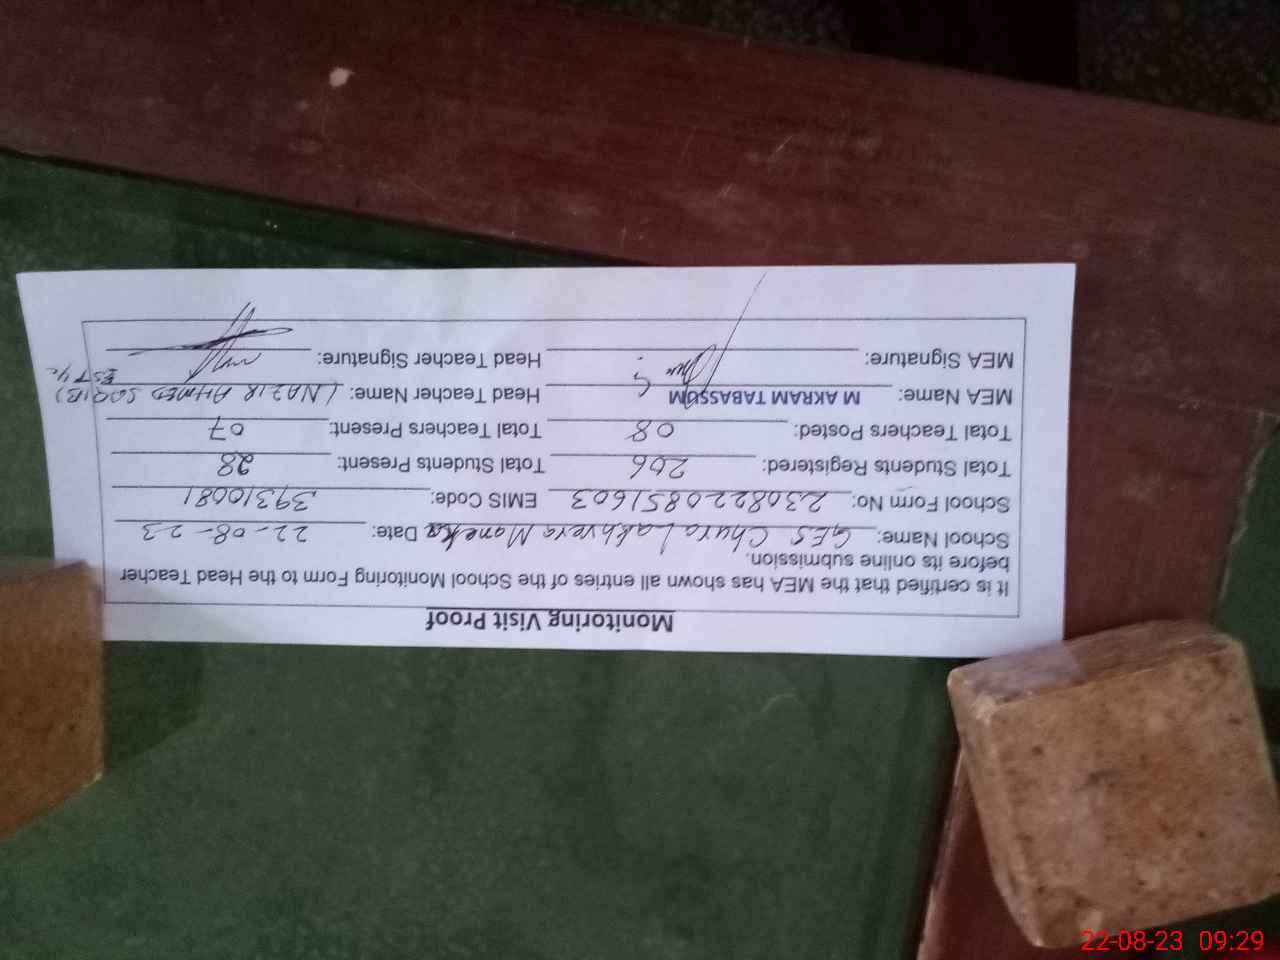 Monitoring Visit Proof
It is certified that the MEA has shown all entries of the School Monitoring Form to the Head Teacher
before its online submission.
School Name: GES Chura Lakhvera Maneka Date: 22-08-23
School Form No: 2308220851603 EMIS Code: 39310081
Total Students Registered: 206 Total Students Present: 28
Total Teachers Posted: 08 Total Teachers Present: 07
MEA Name: M AKRAM TABASSUM Head Teacher Name: (NAZIR AHMED SAQIB)
EST
MEA Signature: Head Teacher Signature:
22-08-23 09:29